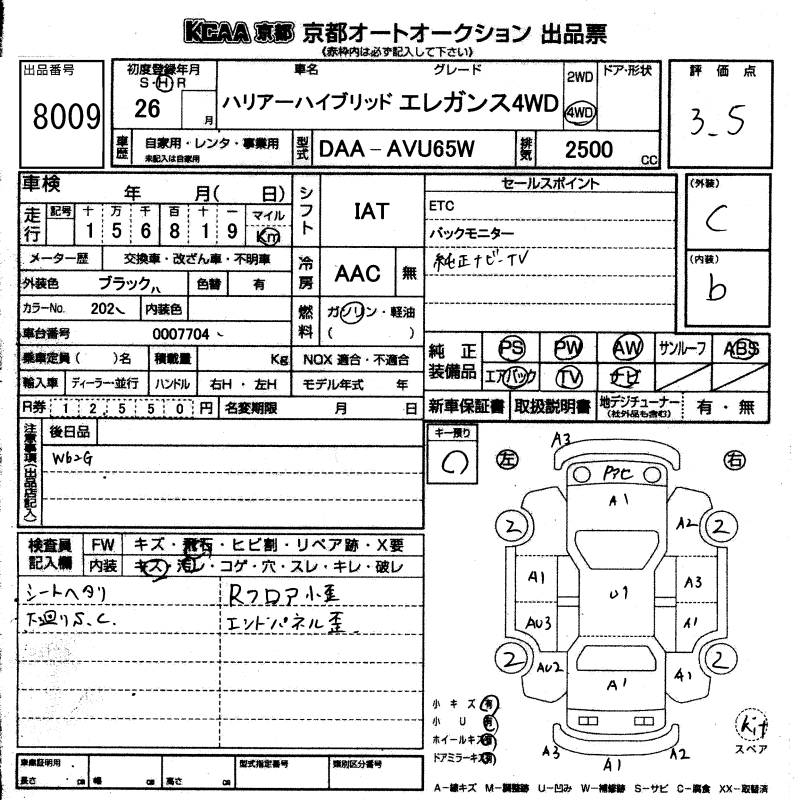 KCAA 京都 京都オートオークション 出品票
《赤枠内は必ず記入して下さい》
出品番号
8009
初度登録年月
S・H・R
26 月
車名 グレード
ハリアーハイブリッド エレガンス4WD
2WD
4WD
ドア・形状
評価点
3.5
車歴
自家用・レンタ・事業用
未記入は自家用
型式
DAA-AVU65W
排気
2500 CC
車検 年 月( 日)
走行
記号 十 万 千 百 十 一 マイル
1 5 6 8 1 9 Km
メーター歴 交換車・改ざん車・不明車
外装色 ブラック 色替 有
カラーNo. 202 内装色
車台番号 0007704
乗車定員( )名 積載量 Kg
輸入車 ディーラー・並行 ハンドル 右H・左H
R券 1 2,5 5 0 円 名変期限 月 日
シフト
IAT
冷房
AAC 無
燃料
ガソリン・軽油
( )
NOX 適合・不適合
モデル年式 年
セールスポイント
ETC
バックモニター
純正ナビ・TV
(外装)
C
(内装)
b
純正装備品
PS PW AW サンルーフ ABS
エアバック TV ナビ
新車保証書 取扱説明書 地デジチューナー(社外品も含む) 有・無
注意事項(出品店記入)
後日品
キー預り
左
右
検査員記入欄
FW キズ・飛石・ヒビ割・リペア跡・X要
内装 キズ・汚レ・コゲ・穴・スレ・キレ・破レ
シートヘタリ
下廻りS.C.
Rフロア小歪
エンドパネル歪
A3
A1
2
A2
2
A1
U1
A3
AU3
A1
2
AU2
A1
A1
2
A3
A1
A2
小キズ 有
小U 有
ホイールキズ 有
ドアミラーキズ 有
Kit
スペア
車庫証明用
長さ cm 幅 cm 高さ cm
型式指定番号
類別区分番号
A-線キズ M-調整跡 U-凹み W-補修跡 S-サビ C-腐食 XX-取替済